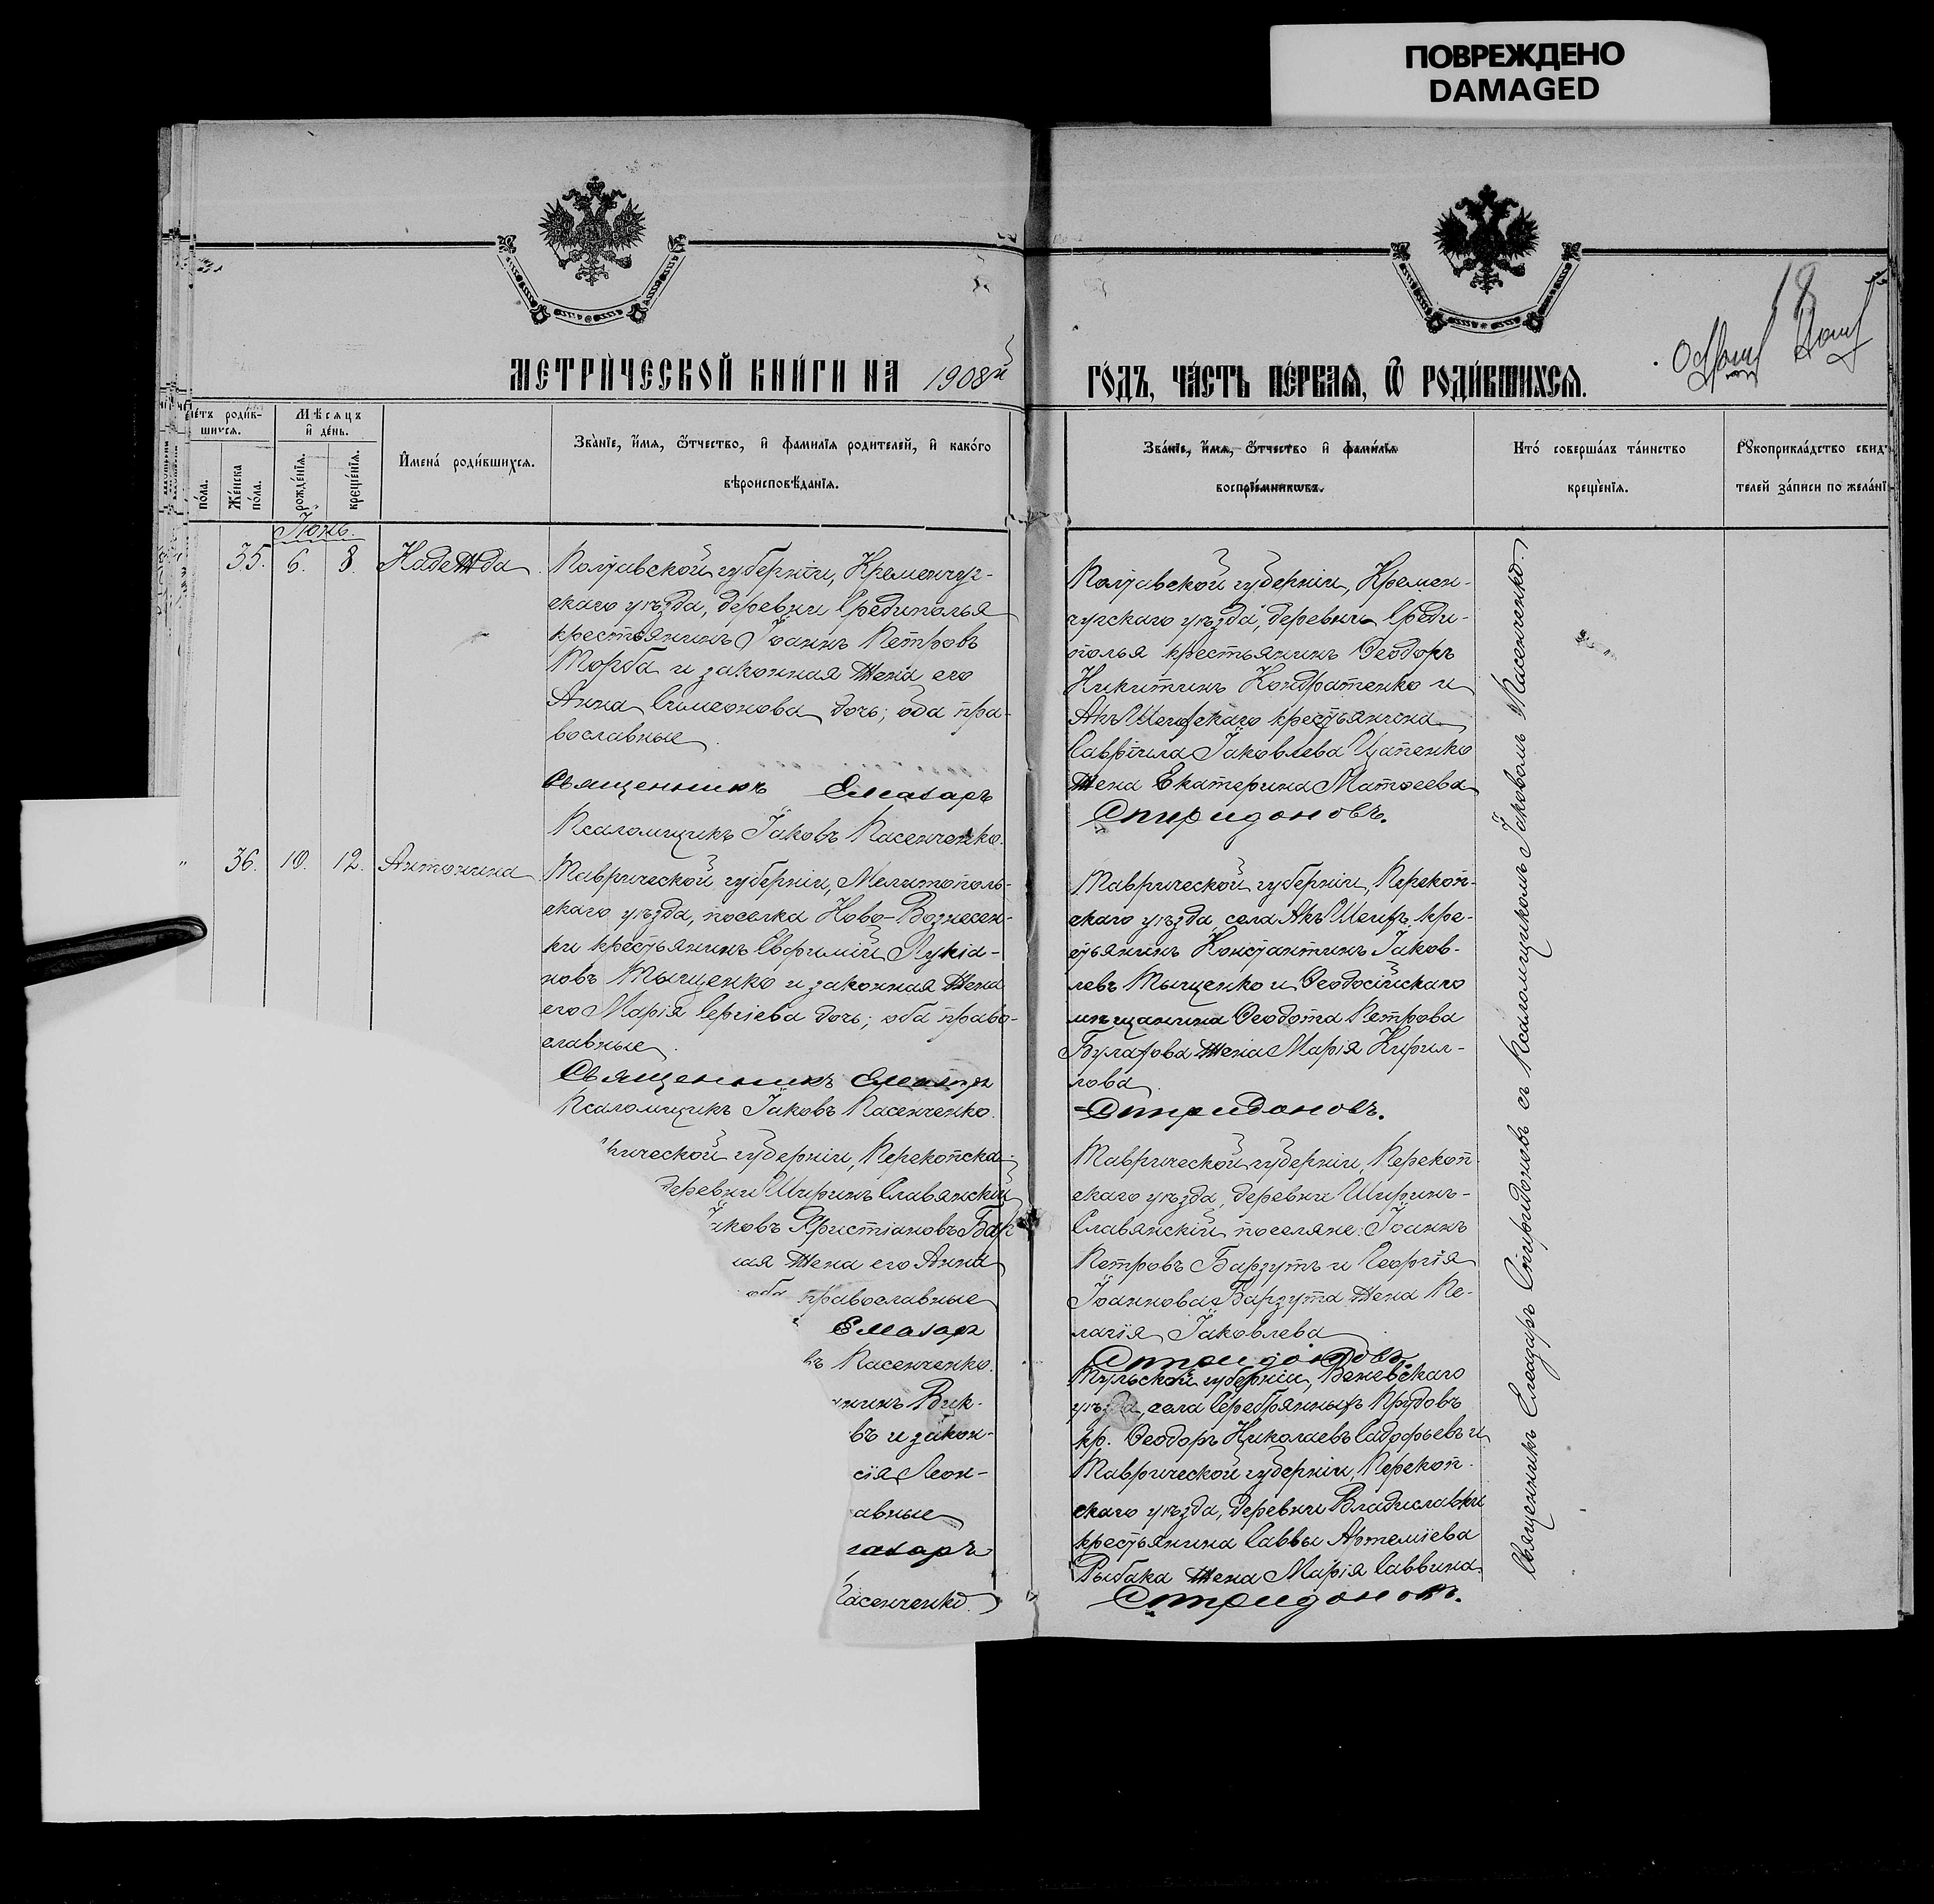 ПОВРЕЖДЕНО
DAMAGED
МЕТРИ́ЧЕСКОЙ КНИ́ГИ НА 1908й
ГО́ДЪ, ЧА́СТЬ ПЕ́РВАЯ, Ѿ РОДИ́ВШИХСЯ.
18
роди́в-
шихся.
Мѣсяцъ
и де́нь.
по́ла.
Же́нска
по́ла.
рожде́нїя.
креще́нїя.
Имена́ роди́вшихся.
Зва̀нїе, и́мя, ѻ́тчество, и фамилїя родителей, и како́го
вѣроисповѣ́данїя.
Зва́нїе, и́мя, ѻ́тчество и фами́лїя
воспрїе́мникѡвъ.
Кто́ соверша́лъ та́инство
креще́нїя.
Рꙋкоприкла́дство свид
телей за́писи по жела́нї
Іюнь.
35. 6. 8. Надежда
Полтавской губерніи, Кременчуг-
скаго уѣзда, деревни Средиполья
крестьянинъ Іоаннъ Петровъ
Торба и законная жена его
Анна Симеонова дочь; оба пра-
вославные
Священникъ Елеазаръ
Псаломщикъ Іаковъ Пасенченко.
Полтавской губерніи, Кремен-
чугскаго уѣзда, деревни Среди-
полья крестьянинъ Ѳеодоръ
Никитинъ Кондратенко и
Акъ-Шеихскаго крестьянина
Гавріила Іаковлева Цапенко
жена Екатерина Матѳеева
Спиридоновъ.
" 36. 10. 12. Антонина
Таврической губерніи, Мелитополь-
скаго уѣзда, поселка Ново-Вознесен-
ки крестьянинъ Евфимій Лукіа-
новъ Тыщенко и законная жена
его Марія Сергіева дочь; оба право-
славные
Священникъ Елеазаръ
Псаломщикъ Іаковъ Пасенченко.
Таврической губерніи, Перекоп-
скаго уѣзда, села Акъ Шеихъ кре-
стьянинъ Константинъ Іаков-
левъ Тыщенко и Ѳеодосійскаго
мѣщанина Ѳеодота Петрова
Булахова жена Марія Кирил-
лова
Спиридоновъ.
рической губерніи, Перекопска-
деревни Ширинъ Славянскій
Іаковъ Христіановъ Бар
ная жена его Анна
оба православные
Елеазаръ
въ Пасенченко.
Таврической губерніи, Перекоп-
скаго уѣзда, деревни Ширинъ-
Славянскій поселяне: Іоаннъ
Петровъ Барзутъ и Георгія
Іоаннова Барзута жена Пе-
лагія Іаковлева
Спиридоновъ.
нинъ Вик-
въ и закон-
сія Леон-
авные
азаръ
асенченко.
Тульской губерніи, Веневскаго
уѣзда, села Серебряныхъ Прудовъ
кр. Ѳеодоръ Николаевъ Садофьевъ и
Таврической губерніи, Перекоп-
скаго уѣзда, деревни Владиславки
крестьянина Саввы Артеміева
Рыбака жена Марія Саввина
Спиридоновъ.
Священникъ Елеазаръ Спиридоновъ съ Псаломщикомъ Іаковомъ Пасенченко.